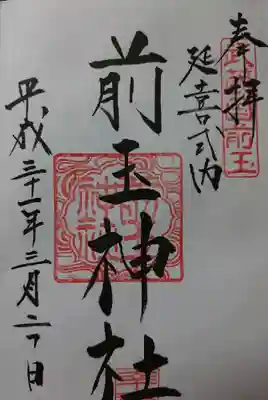 奉拝
延喜式内
前玉神社
平成三十一年三月二日